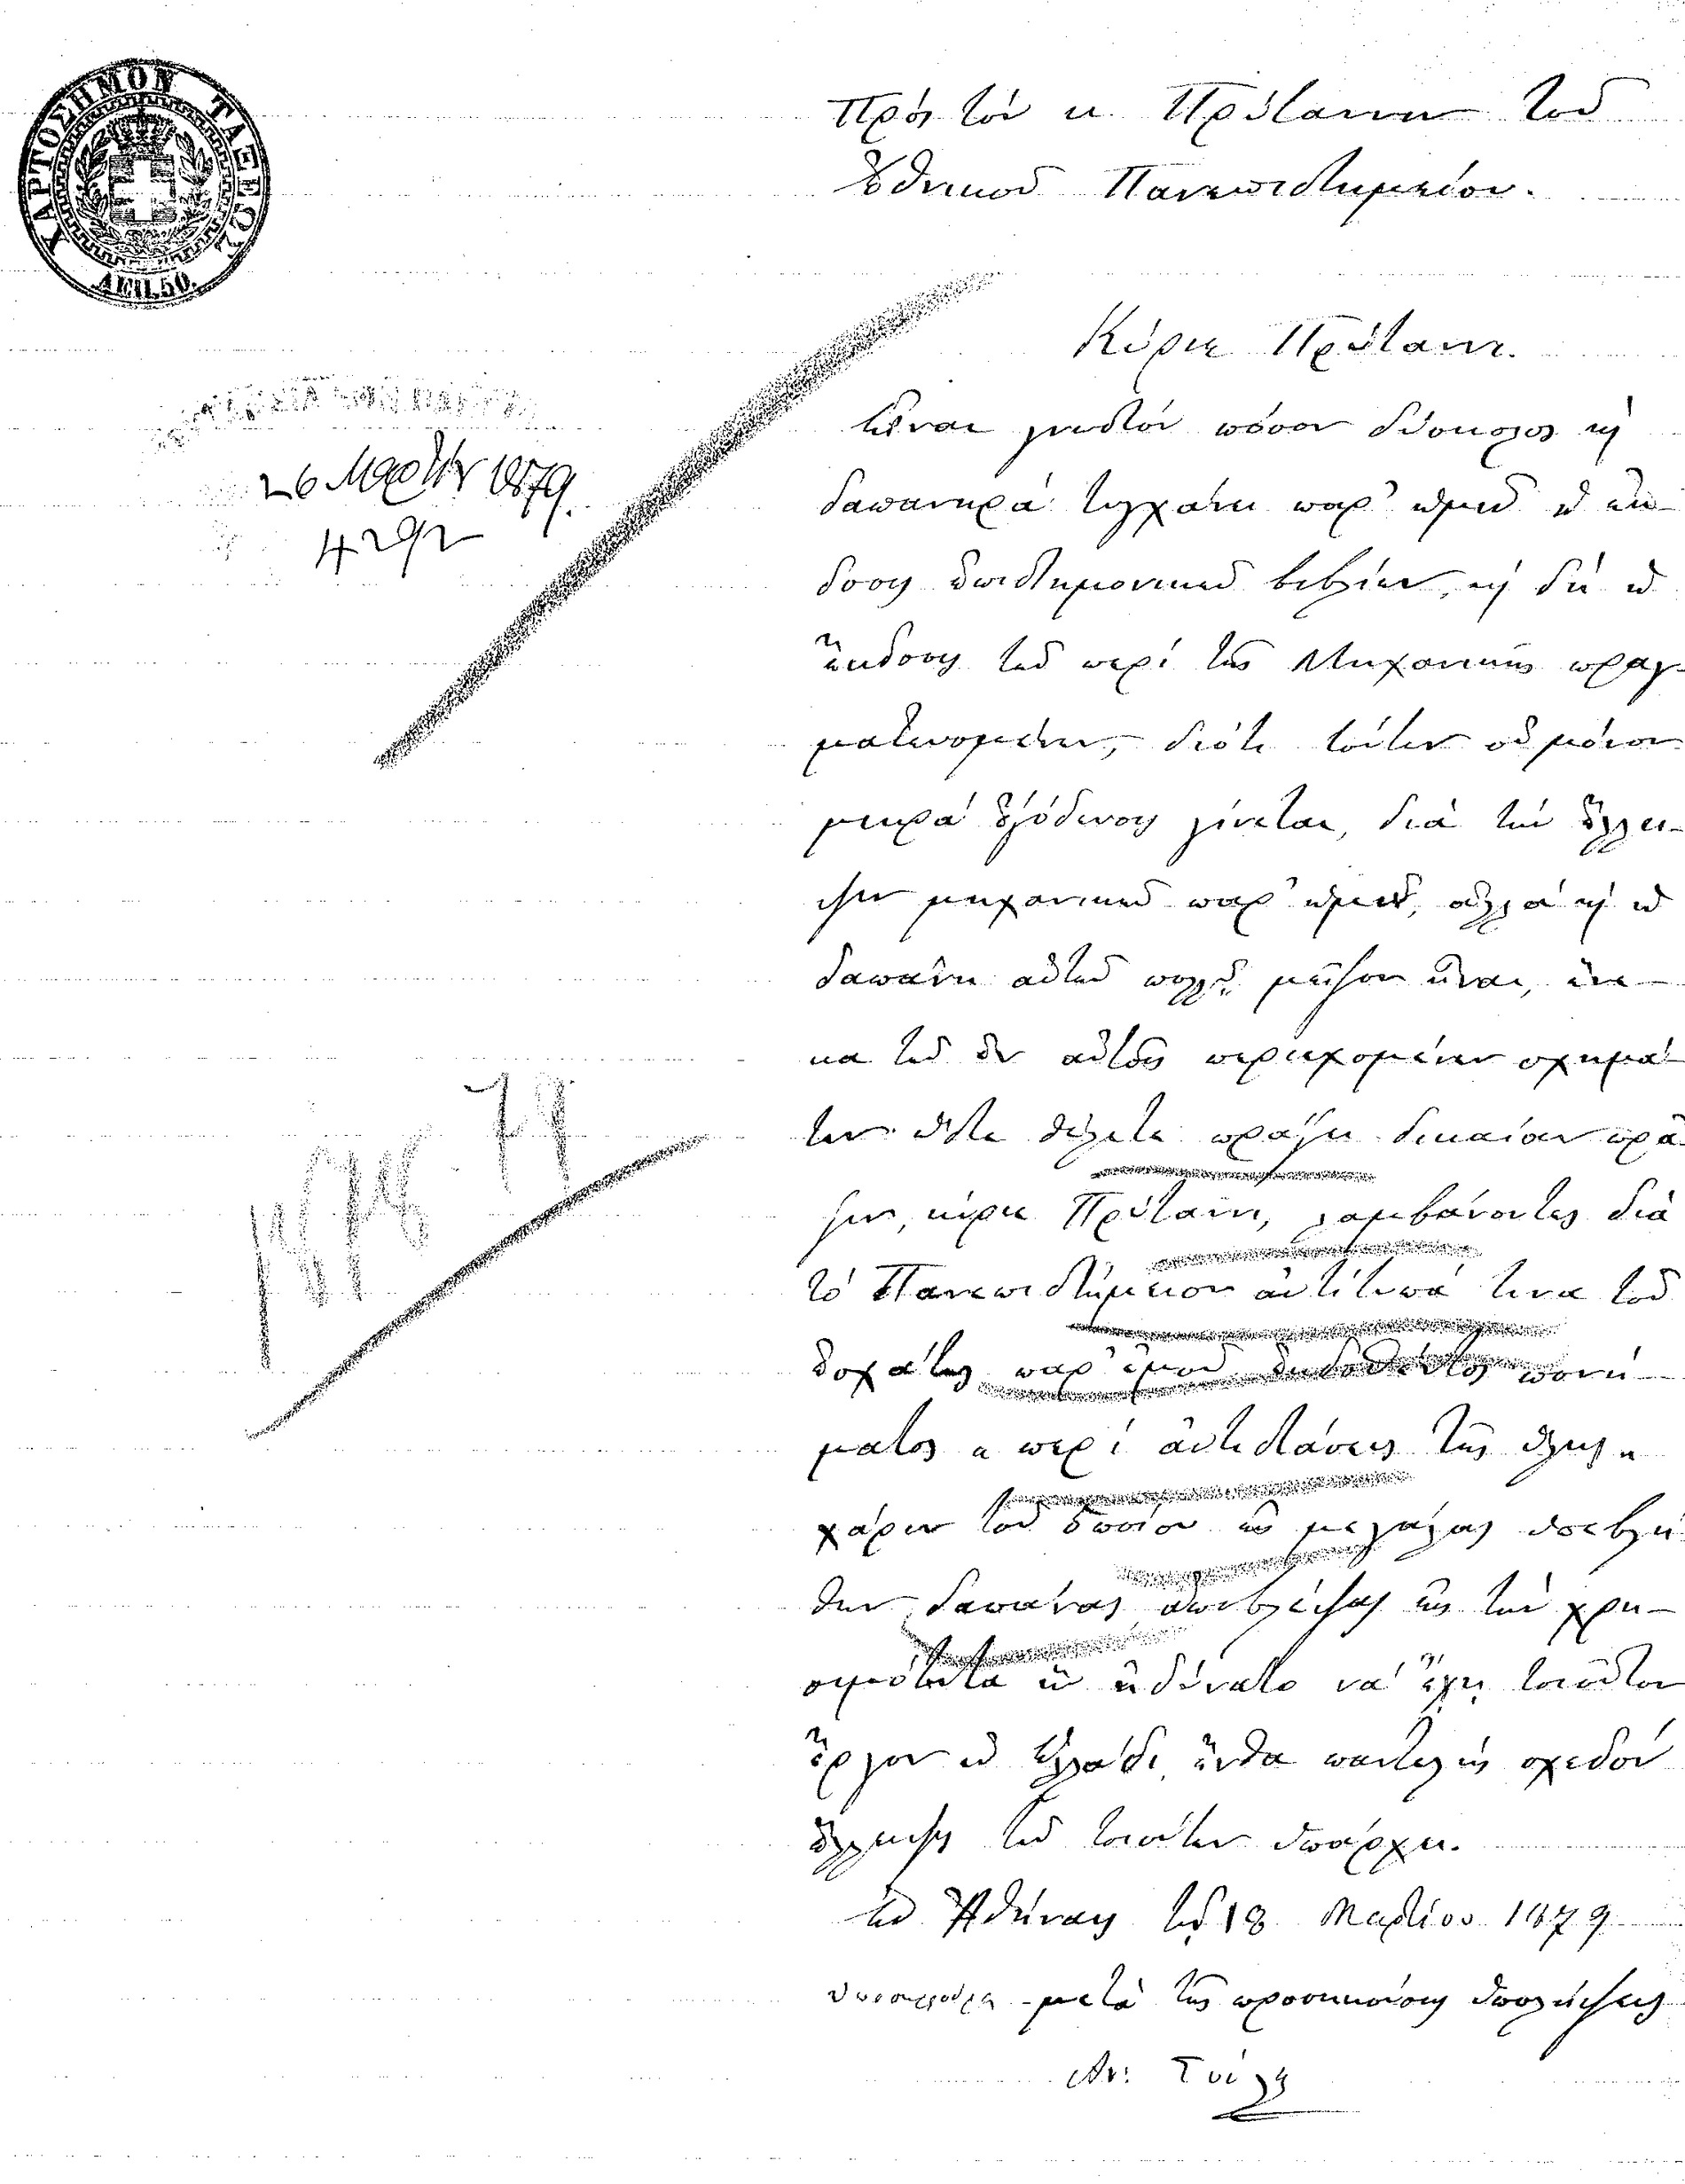 ΧΑΡΤΟΣΗΜΟΝ ΤΑΞΕΩΣ
ΛΕΠ. 50.
Πρὸς τὸν κ. Πρύτανιν τοῦ
Ἐθνικοῦ Πανεπιστημείου.
Κύριε Πρύτανι.
26 Μαρτίου 1879.
4292
Εἶναι γνωστὸν πόσον δύσκολος καὶ
δαπανηρὰ τυγχάνει παρ' ἡμῖν ἡ ἔκ-
δοσις ἐπιστημονικῶν βιβλίων, καὶ δὴ ἡ
ἔκδοσις τῶν περὶ τῆς Μηχανικῆς πραγ-
ματευομένων, διότι τούτων οὐ μόνον
μικρὰ ἐξόδευσις γίνεται, διὰ τὴν ἔλλει-
ψιν μηχανικῶν παρ' ἡμῖν, ἀλλὰ καὶ ἡ
δαπάνη αὐτῶν πολλῷ μείζων εἶναι, ἕνε-
κα τῶν ἐν αὐτοῖς περιεχομένων σχημά-
των. ὥστε θέλετε πράξει δικαίαν πρᾶ-
ξιν, κύριε Πρύτανι, λαμβάνοντες διὰ
τὸ Πανεπιστήμειον ἀντίτυπά τινα τοῦ
ἐσχάτως παρ' ἐμοῦ ἐκδοθέντος πονή-
ματος « περὶ ἀντιστάσεως τῆς ὕλης »
χάριν τοῦ ὁποίου εἰς μεγάλας ὑπεβλή-
θην δαπάνας ἀποβλέψας εἰς τὴν χρη-
σιμότητα ἣν ἠδύνατο νὰ ἔχῃ τοιοῦτον
ἔργον ἐν Ἑλλάδι, ἔνθα παντελὴς σχεδὸν
ἔλλειψις τῶν τοιούτων ὑπάρχει.
Ἐν Ἀθήναις τῇ 18 Μαρτίου 1879
μετὰ τῆς προσηκούσης ὑπολήψεως